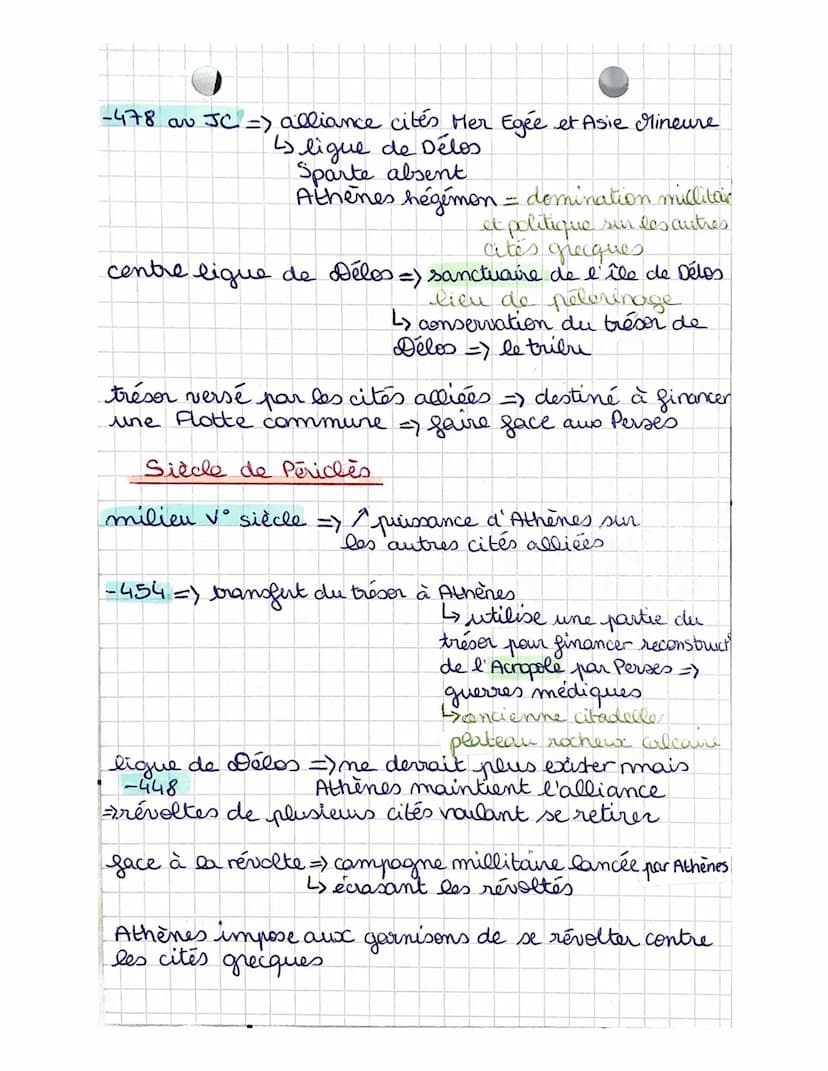 -478 av JC => alliance cités Mer Egée et Asie Mineure
↳ ligue de Délos
Sparte absent
Athènes hégémon = domination millitair
et politique sur les autres
cités grecques
centre ligue de Délos => sanctuaire de l'île de Délos
lieu de pélerinage
↳ conservation du trésor de
Délos => le tribu
trésor versé par les cités alliées => destiné à financer
une flotte commune => faire face aux Perses
Siècle de Périclès
milieu V° siècle => ↗ puissance d'Athènes sur
les autres cités alliées
-454 => transfert du trésor à Athènes
↳ utilise une partie du
trésor pour financer reconstruct°
de l'Acropole par Perses =>
guerres médiques
↳ ancienne citadelle
plateau rocheux calcaire
ligue de Délos => ne devrait plus exister mais
-448 Athènes maintient l'alliance
=> révoltes de plusieurs cités voulant se retirer
face à la révolte => campagne millitaire lancée par Athènes
↳ écrasant les révoltés
Athènes impose aux garnisons de se révolter contre
les cités grecques